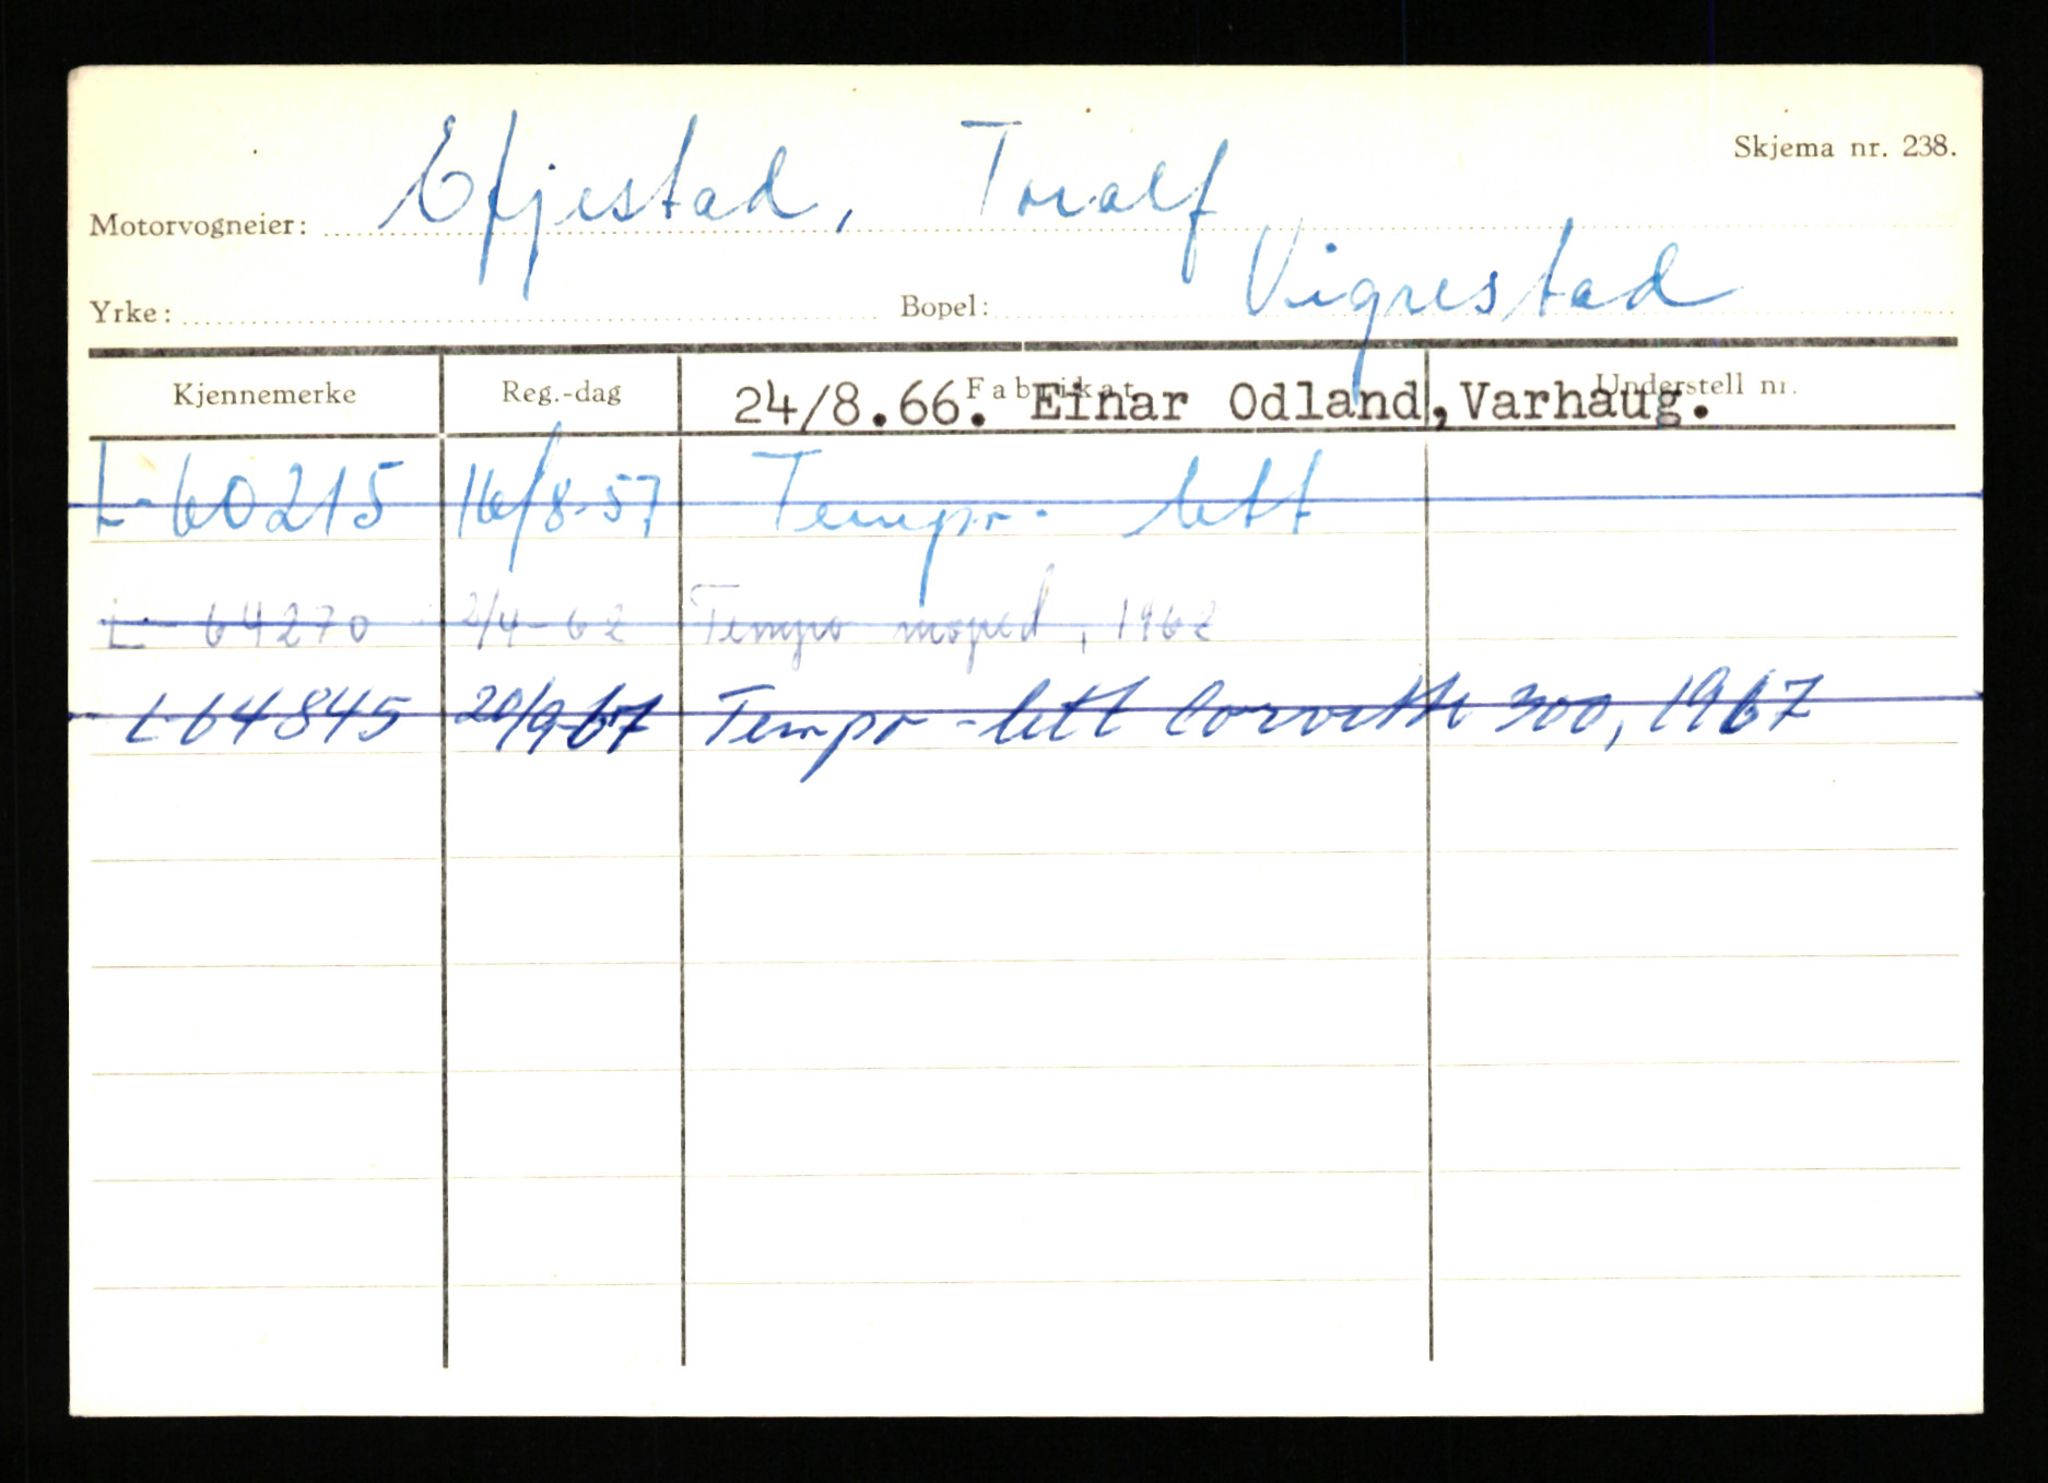 Skjema nr. 238.
Motorvogneier: Efjestad, Toralf
Yrke: Bopel: Vigrestad
Kjennemerke Reg.-dag Fabrikat Understell nr.
24/8.66. Einar Odland, Varhaug.
L-60215 16/8-57 Tempo-lett
L-64270 2/4-62 Tempo moped, 1962
L-64845 20/9-67 Tempo-lett Corvette 300, 1967